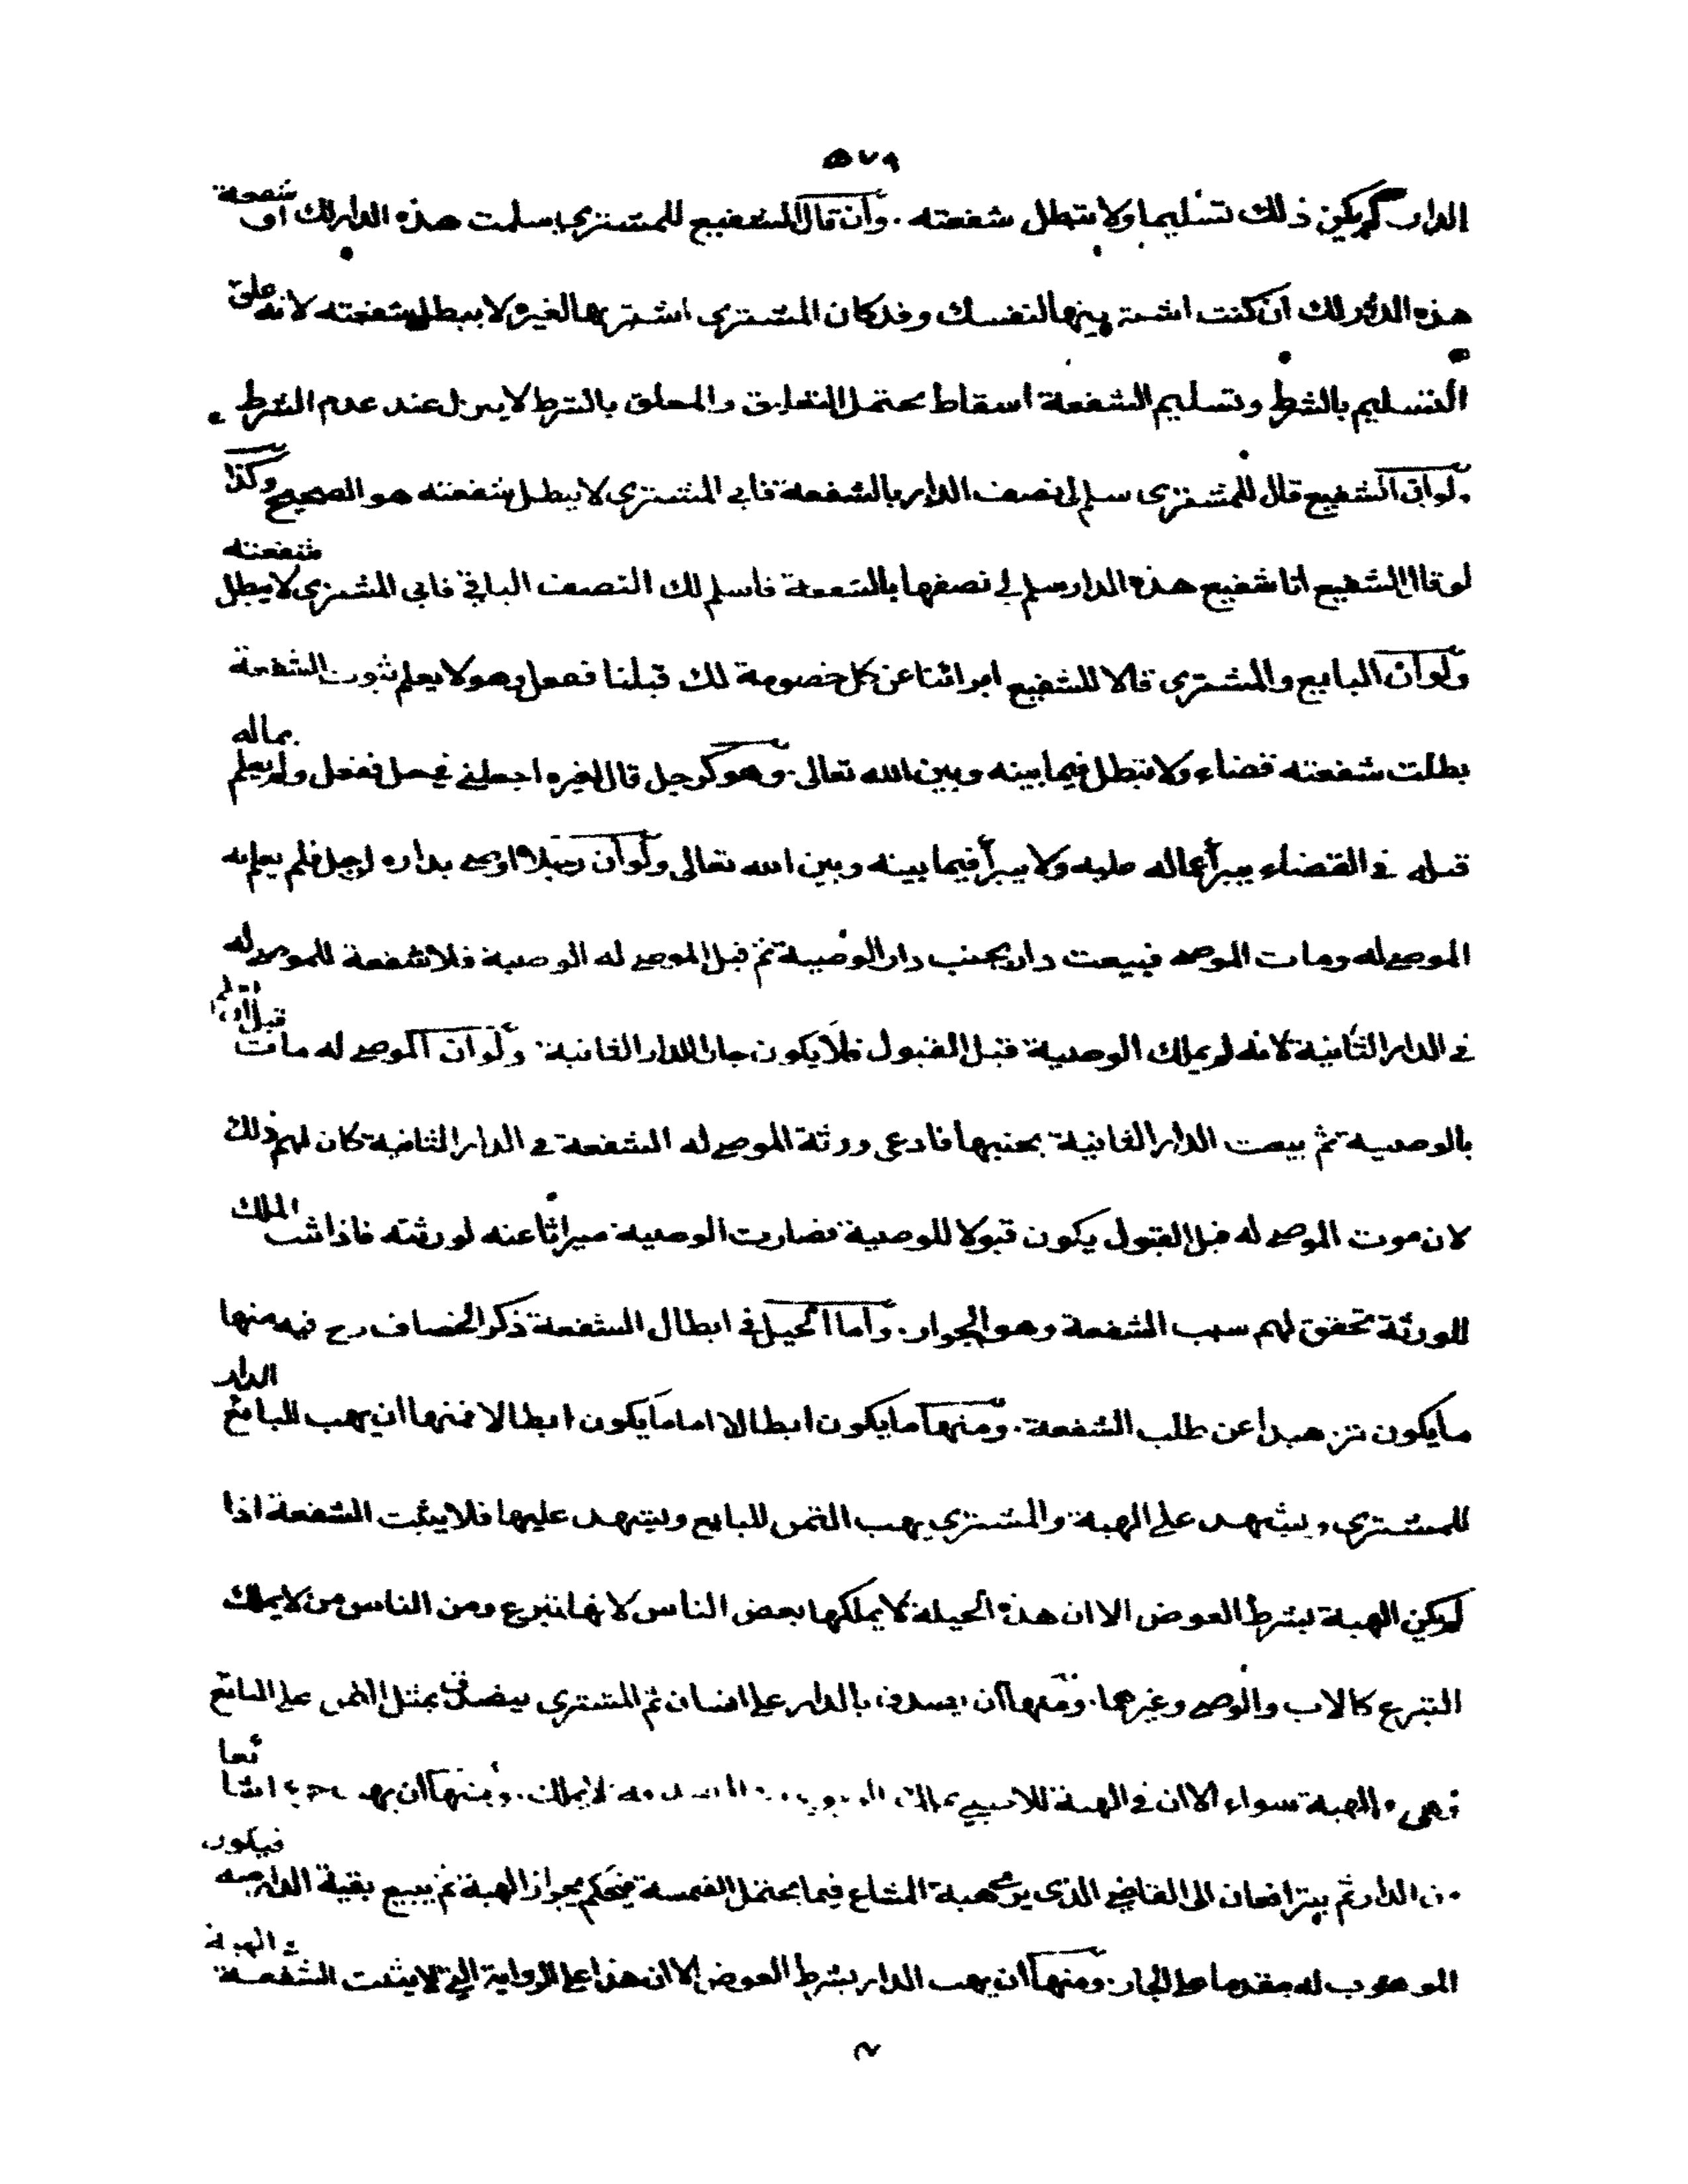 ٥٧٩
الدار لم يكن ذلك تسليما ولا تبطل شفعته . وان قال الشفيع للمشتري سلمت هذه الدار لك او شفعة
هذه الدار لك ان كنت اشتريتها لنفسك وقد كان المشتري اشتريها لغيره لا يبطل شفعته لانه علق
التسليم بالشرط وتسليم الشفعة اسقاط يحتمل التعليق والمعلق بالشرط لا ينزل عند عدم الشرط .
ولو ان الشفيع قال للمشتري سلم لي نصف الدار بالشفعة فابى المشتري لا يبطل شفعته هو الصحيح وكذا
لو قال الشفيع انا شفيع هذه الدار سلم لي نصفها بالشفعة فاسلم لك النصف الباقي فابى المشتري لا يبطل شفعته
ولو ان البايع والمشتري قالا للشفيع ابرائنا عن كل خصومة لك قبلنا ففعل وهو لا يعلم ثبوت الشفعة
بطلت شفعته قضاء ولا تبطل فيما بينه وبين الله تعالى . وهو كرجل قال لغيره اجعلني في حل ففعل ولم يعلم بماله
قبله في القضاء يبرأ عماله عليه ولا يبرأ فيما بينه وبين الله تعالى ولو ان رجلا اوصى بداره لرجل فلم يعلم به
الموصى له ومات الموصي فبيعت دار بجنب دار الوصية ثم قبل الموصى له الوصية فلا شفعة للموصى له
في الدار الثانية لانه لم يملك الوصية قبل القبول فلا يكون جارا للدار الثانية . ولو ان الموصى له مات قبل ان يعلم
بالوصية ثم بيعت الدار الثانية بجنبها فادعى ورثة الموصى له الشفعة في الدار الثانية كان لهم ذلك
لان موت الموصى له قبل القبول يكون قبولا للوصية فصارت الوصية ميراثا عنه لورثته فاذا ثبت الملك
للورثة تحقق لهم سبب الشفعة وهو الجوار . واما الحيل في ابطال الشفعة ذكر الخصاف رح فيه منها
ما يكون تزهيدا عن طلب الشفعة . ومنها ما يكون ابطالا اما ما يكون ابطالا فمنها ان يهب البائع الدار
للمشتري ويشهد على الهبة والمشتري يهب الثمن للبايع ويشهد عليها فلا يثبت الشفعة اذا
لم يكن الهبة بشرط العوض الا ان هذه الحيلة لا يملكها بعض الناس لانها تبرع ومن الناس من لا يملك
التبرع كالاب والوصي وغيرهما . ومنها ان يصدق بالدار على انسان ثم المشتري يتصدق بمثل الثمن على البائع
فهي والهبة سواء الا ان في الهبة للاجنبي يملك لا يملك . ومنها ان يهب
من الدار ثم يترافعان الى القاضي الذي يرى هبة المشاع فيما يحتمل القسمة فيحكم بجواز الهبة ثم يبيع بقية الدار منه فيكون
الموهوب له مقدما على الجار . ومنها ان يهب الدار بشرط العوض الا ان هذا على الرواية التي لا يثبت الشفعة في الهبة